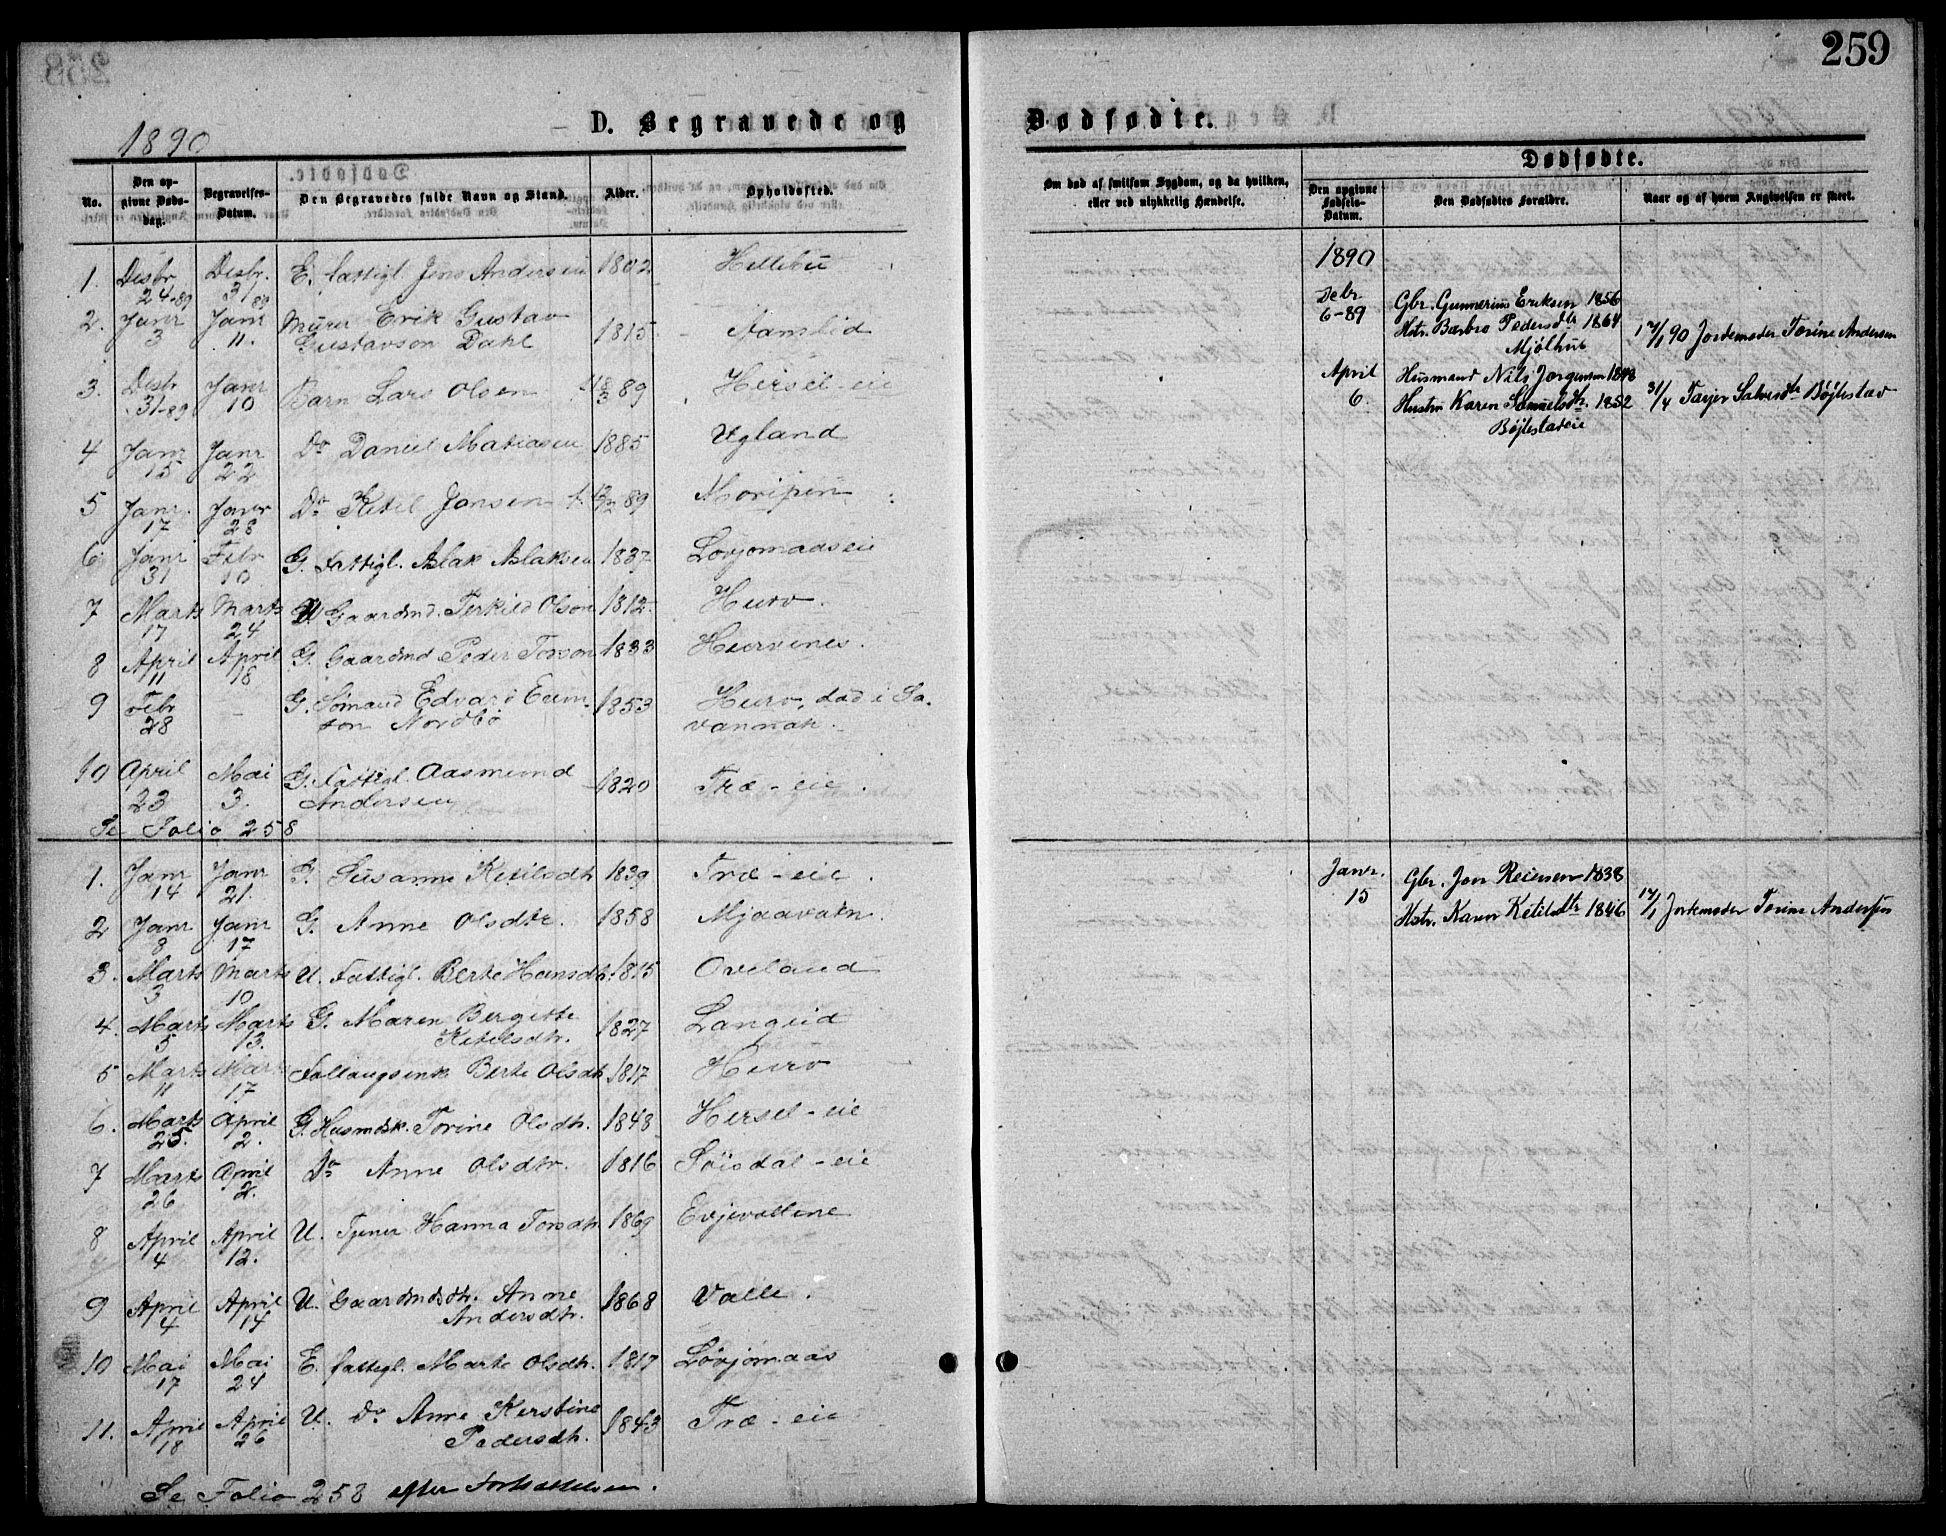 259
D. Begravede og
Dødfødte.
1890
No.
Den op-
givne Døds-
dag.
Begravelses-
Datum.
Den Begravedes fulde Navn og Stand.
Alder.
Opholdssted.
Om død af smitsom Sygdom, og da hvilken,
eller ved ulykkelig Hændelse.
Dødfødte.
Den opgivne
Fødsels-
Datum.
Den Dødfødtes Forældre.
Naar og af hvem Angivelsen er skeet.
1. Desbr. 24-89 Desbr. 31 89 E. fattigl. Jens Andersen 1802 Hillebu
2. Janr 3 Janr 11. Murer Erik Gustav
Gustavson Dahl 1815 Aamlid
3. Desbr 31-89 Janr 10 Barn Lars Olsen 89 Hersel-eie
4 Janr 15 Janr 22 Do Daniel Matiasen 1885 Ugland
5 Janr. 17 Janr 28 Do Ketil Jonsen 89
6 Janr 31 Febr 10 G. Fattigl. Aslak Aslaksen 1837 Lovjomaaseie
7 Marts 17 Marts 24 U Gaardmd. Terkild Olson 1812 Hurv.
8 April 11 April 18 G. Gaardmd Peder Torson 1833 Hurvenes.
9 Febr 28 - G. Sømand Edvard
son Nordbö 1853 Hurv, död i Sa-
vannah.
10 April 23 Mai 3. G. Fattigl. Aasmund
Andersen 1820 Træ-eie.
Se Folio 258
1. Janr 14 Janr 21. G. Susanne Ketilsdtr 1839 Træ-eie.
2 Janr 8 Janr 17 G. Anne Olsdtr. 1858 Mjaavatn.
3. Marts 3 Marts 10 U. Fattigl. Berte Hansdtr. 1815 Oveland
4. Marts 5 Marts 13. G. Maren Bergitte
Ketelsdtr. 1827 Langeid
5 Marts 11 Marts 17 Berte Olsdtr 1817 Hurv
6. Marts 25. April 2. G. Husmdsk. Torine Olsdtr. 1848 Hersel-eie
7 Marts 26 April 2. Do Anne Olsdtr. 1816 -eie
8 April 4 April 12. U. Tjener Hanna Torsdtr. 1869 Evjevollene
9 April 4 April 14 U. Gaardmdsdtr. Anne
Andersdtr. 1868 Valle.
10 Mai 17 Mai 24 E. fattigl. Marte Olsdtr. 1817 Lövjomaas
11. April 18 April 26 U. Do Anne Kerstine
Pedersdtr. 1843 Træ-eie
Se Folio 258 efter Fortsættelsen.
1890
Debr 6-89 Gbr. Gunnerius Eriksen 1856
Hstr. Barbro Pedersdtr 1864
Mjölhus
17/1 90 Jordemoder Torine Andersen
April 6. Husmand Nils Jorgensen 1848
Hustru Karen Samuelsdtr. 1852
Böjlestadeie
Tarjer Salvesdtr Böjlestad
Janr. 15 Gbr. Jon Reiersen 1838
Hstr. Karen Ketilsdtr 1846
17/1 Jordemoder Torine Andersen